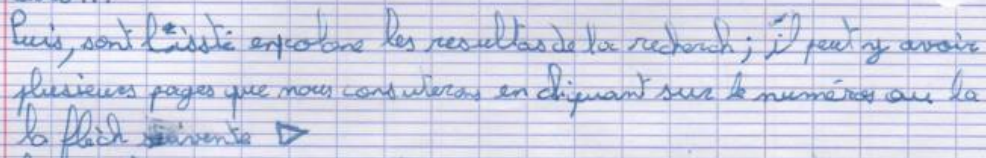 Puis, sont listé encolone les resultas de la recherch; il peut y avoir
plusieurs pages que nous consulterons en cliquant sur le numéros ou la
la flèch suivente ▷